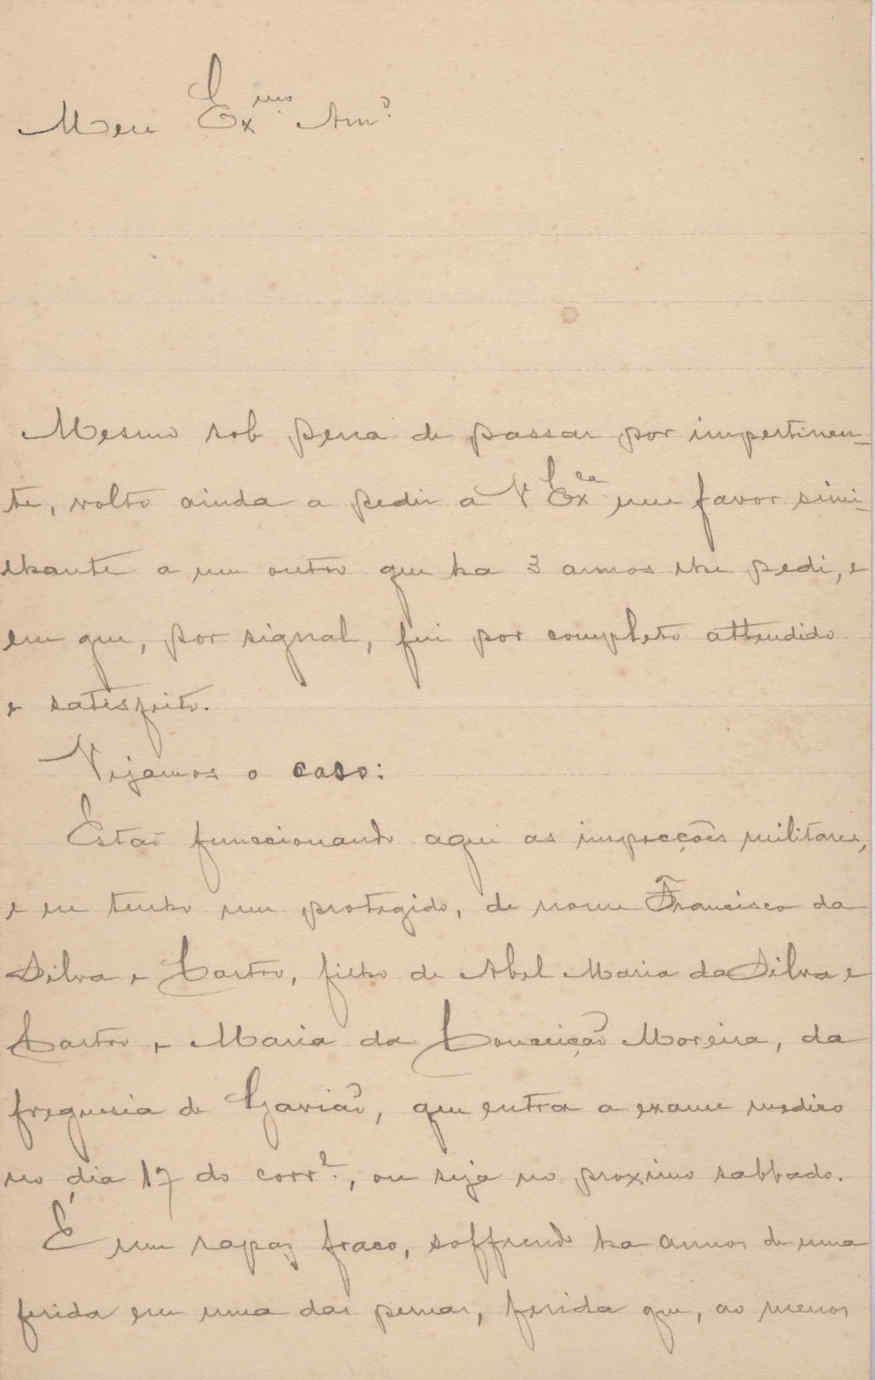 Meu Exmo Amo
Mesmo sob pena de passar por impertinen-
te, volto ainda a pedir a V Exca um favor simi-
lhante a um outro que ha 3 annos lhe pedi, e
em que, por signal, fui por completo attendido
e satisfeito.
Vejamos o caso:
Estão funccionando aqui as inspecções militares,
e eu tenho um protegido, de nome Francisco da
Silva e Castro, filho de Abel Maria da Silva e
Castro e Maria da Conceição Moreira, da
freguesia de Gavião, que entra a exame medico
no dia 17 do corre., ou seja no proximo sabbado.
É um rapaz fraco, soffrendo ha annos de uma
ferida em uma das pernas, ferida que, ao menos